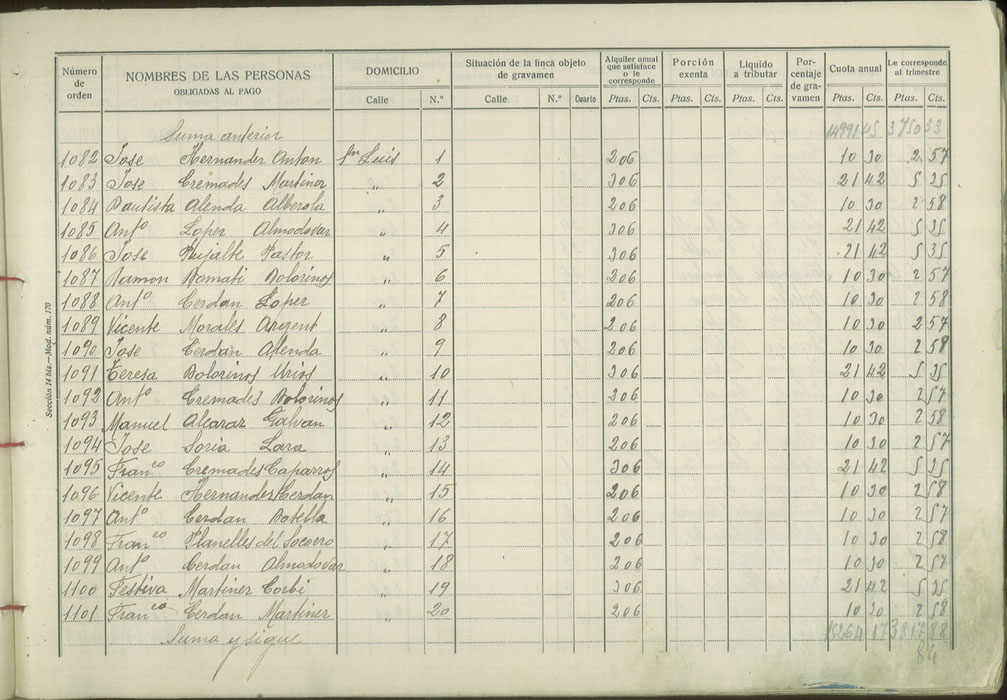 Número de orden NOMBRES DE LAS PERSONAS OBLIGADAS AL PAGO DOMICILIO Situación de la finca objeto de gravamen Alquiler anual que satisface o le corresponde Porción exenta Líquido a tributar Por-centaje de gra-vamen Cuota anual Le corresponde al trimestre
Calle N.º Calle N.º Cuarto Ptas. Cts. Ptas. Cts. Ptas. Cts. Ptas. Cts. Ptas. Cts.
Suma anterior 14991 45 3750 33
1082 Jose Hernander Anton Sn Luis 1 206 10 30 2 57
1083 Jose Cremades Martiner " 2 306 21 42 5 35
1084 Bautista Alenda Alberola " 3 206 10 30 2 58
1085 Antº Loper Almodovar " 4 306 21 42 5 35
1086 Jose Pujalte Pastor " 5 306 21 42 5 35
1087 Ramon Damati Dolorinos " 6 206 10 30 2 57
1088 Antº Cerdan Loper " 7 206 10 30 2 58
1089 Vicente Morales Argent " 8 206 10 30 2 57
1090 Jose Cerdan Alenda " 9 206 10 30 2 58
1091 Teresa Dolorinos Urios " 10 306 21 42 5 35
1092 Antº Cremades Dolorinos " 11 206 10 30 2 57
1093 Manuel Alcarar Galvan " 12 206 10 30 2 58
1094 Jose Soria Lara " 13 206 10 30 2 57
1095 Franco Cremades Caparros " 14 306 21 42 5 35
1096 Vicente Hernandes Cerdan " 15 206 10 30 2 58
1097 Antº Cerdan Botella " 16 206 10 30 2 57
1098 Franco Planelles del Socorro " 17 206 10 30 2 58
1099 Antº Cerdan Almodovar " 18 206 10 30 2 57
1100 Festiva Martiner Corbi " 19 306 21 42 5 35
1101 Franco Cerdan Martiner " 20 206 10 30 2 58
Suma y sigue 15264 17 3817 88
84
Sección 14 bis.—Mod. núm. 170